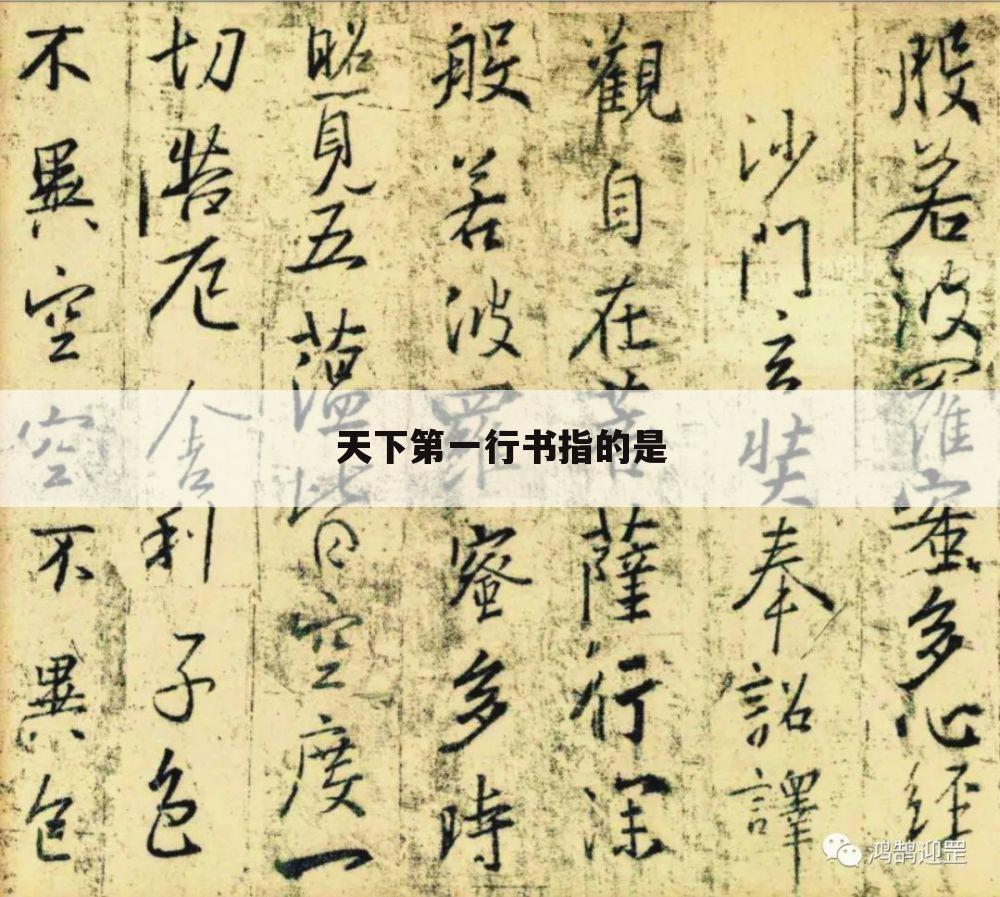 般若波羅蜜多心經
沙門玄奘奉詔譯
觀自在菩薩行深
般若波羅蜜多時
照見五蘊皆空度一
切苦厄舍利子色
不異空空不異色
天下第一行书指的是
鸿鹄迎罡